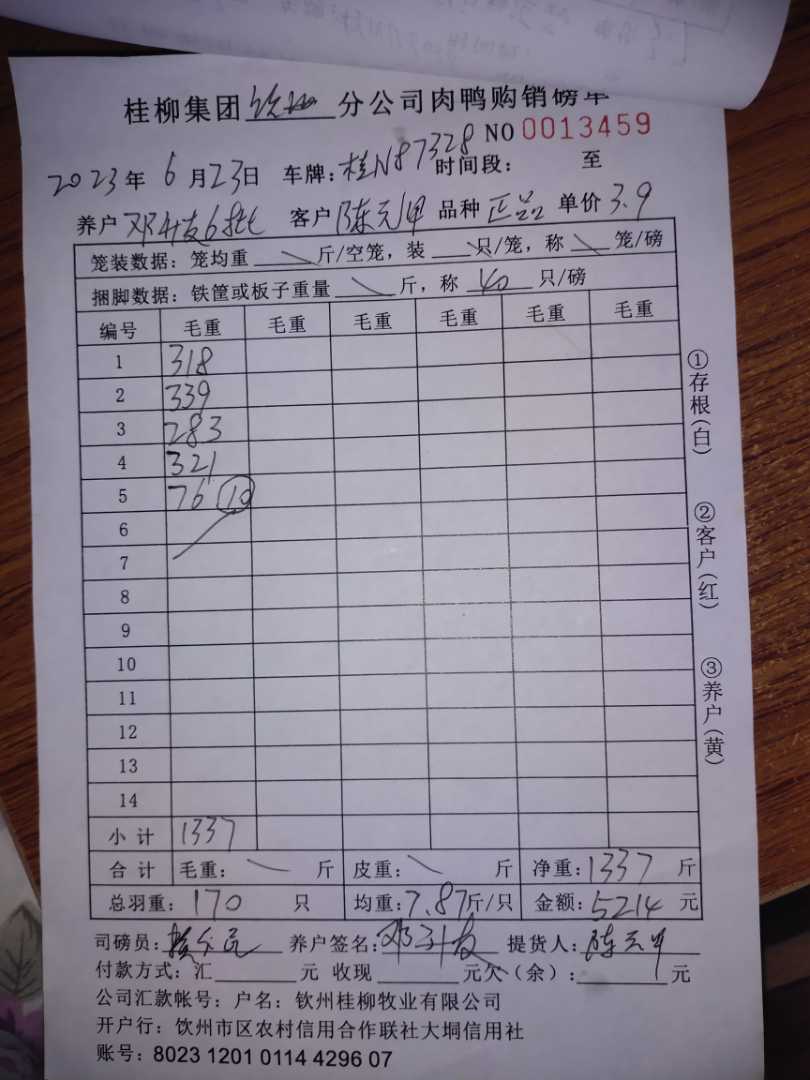 桂柳集团钦州分公司肉鸭购销磅单
NO 0013459
2023年 6月23日 车牌:桂N87328 时间段: 至
养户 邓升发6批 客户 陈元甲 品种 正品 单价 3.9
笼装数据:笼均重 \ 斤/空笼,装 \ 只/笼,称 \ 笼/磅
捆脚数据:铁筐或板子重量 \ 斤,称 40 只/磅
编号 毛重 毛重 毛重 毛重 毛重 毛重
1 318
2 339
3 283
4 321
5 76 (10)
6
7
8
9
10
11
12
13
14
小计 1337
合计 毛重: \ 斤 皮重: \ 斤 净重:1337 斤
总羽重:170 只 均重:7.87斤/只 金额:5214 元
司磅员: 养户签名:邓升发 提货人:陈元甲
付款方式:汇 元 收现 元欠(余): 元
公司汇款帐号:户名:钦州桂柳牧业有限公司
开户行:饮州市区农村信用合作联社大垌信用社
账号:8023 1201 0114 4296 07
①存根(白)
②客户(红)
③养户(黄)